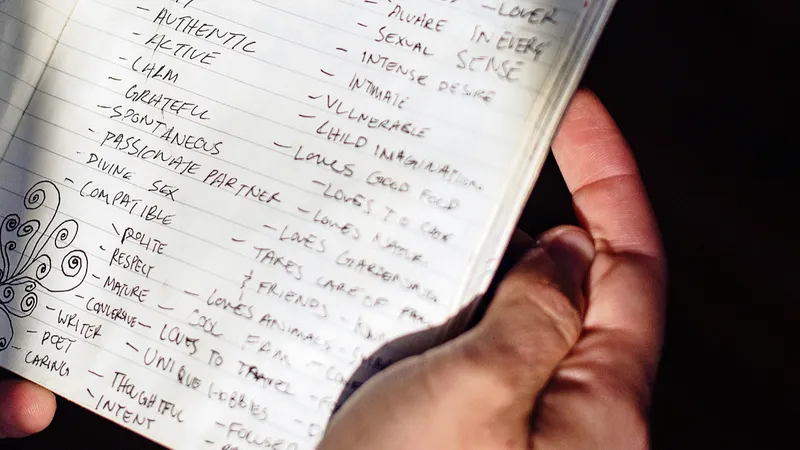 - AUTHENTIC
- ACTIVE
- CALM
- GRATEFUL
- SPONTANEOUS
- PASSIONATE PARTNER
- DIVINE SEX
- COMPATIBLE
- POLITE
- RESPECT
- MATURE
- CONVERSIVE
- WRITER
- POET
- CARING
- THOUGHTFUL
- INTENT
- LOVER
- AWARE IN EVERY
- SEXUAL SENSE
- INTENSE DESIRE
- INTIMATE
- VULNERABLE
- CHILD IMAGINATION
- LOVES GOOD FOOD
- LOVES TO COOK
- LOVES NATURE
- LOVES GARDENING
- TAKES CARE OF FAM
& FRIENDS
- LOVES ANIMALS
- COOL FAM
- LOVES TO TRAVEL
- UNIQUE HOBBIES
- FOCUSED